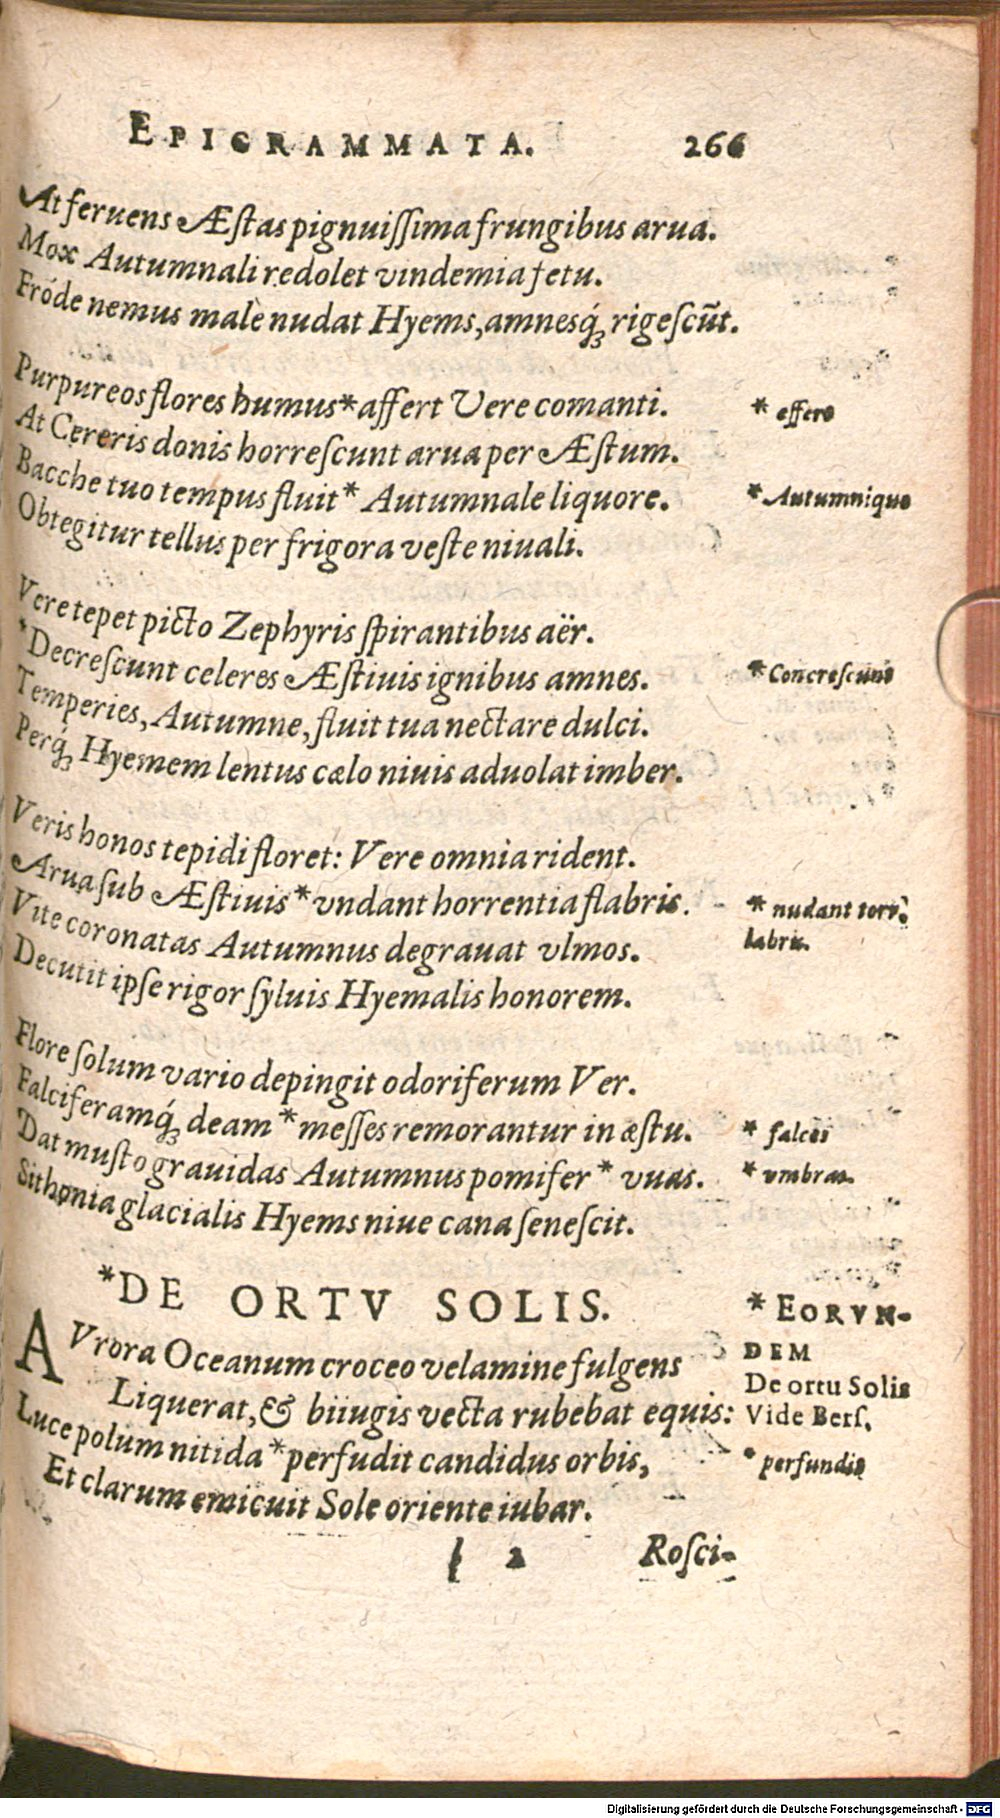 EPIGRAMMATA. 266
At feruens Æſtas pignuiſſima frungibus arua.
Mox Autumnali redolet vindemia fetu.
Fróde nemus malè nudat Hyems, amnesq́; rigeſcūt.
Purpureos flores humus* affert Vere comanti. * effert
At Cereris donis horreſcunt arua per Æſtum.
Bacche tuo tempus fluit* Autumnale liquore. * Autumniquo
Obtegitur tellus per frigora veſte niuali.
Vere tepet picto Zephyris ſpirantibus aër.
*Decreſcunt celeres Æſtiuis ignibus amnes. * Concreſcunt
Temperies, Autumne, fluit tua nectare dulci.
Perq́; Hyemem lentus cælo niuis aduolat imber.
Veris honos tepidi floret: Vere omnia rident.
Arua ſub Æſtiuis* vndant horrentia flabris. * nudant torr.
labris.
Vite coronatas Autumnus degrauat vlmos.
Decutit ipſe rigor ſyluis Hyemalis honorem.
Flore ſolum vario depingit odoriferum Ver.
Falciferamq́; deam *meſſes remorantur in æſtu. * falces
Dat muſto grauidas Autumnus pomifer* vuas. * vmbras.
Sithonia glacialis Hyems niue cana ſeneſcit.
*DE ORTV SOLIS. * EORVN-
DEM
De ortu Solis
Vide Berſ.
AVrora Oceanum croceo velamine fulgens
Liquerat, & biiugis vecta rubebat equis:
Luce polum nitida *perfudit candidus orbis, * perfundit
Et clarum emicuit Sole oriente iubar.
l 2 Roſci-
Digitalisierung gefördert durch die Deutsche Forschungsgemeinschaft - DFG